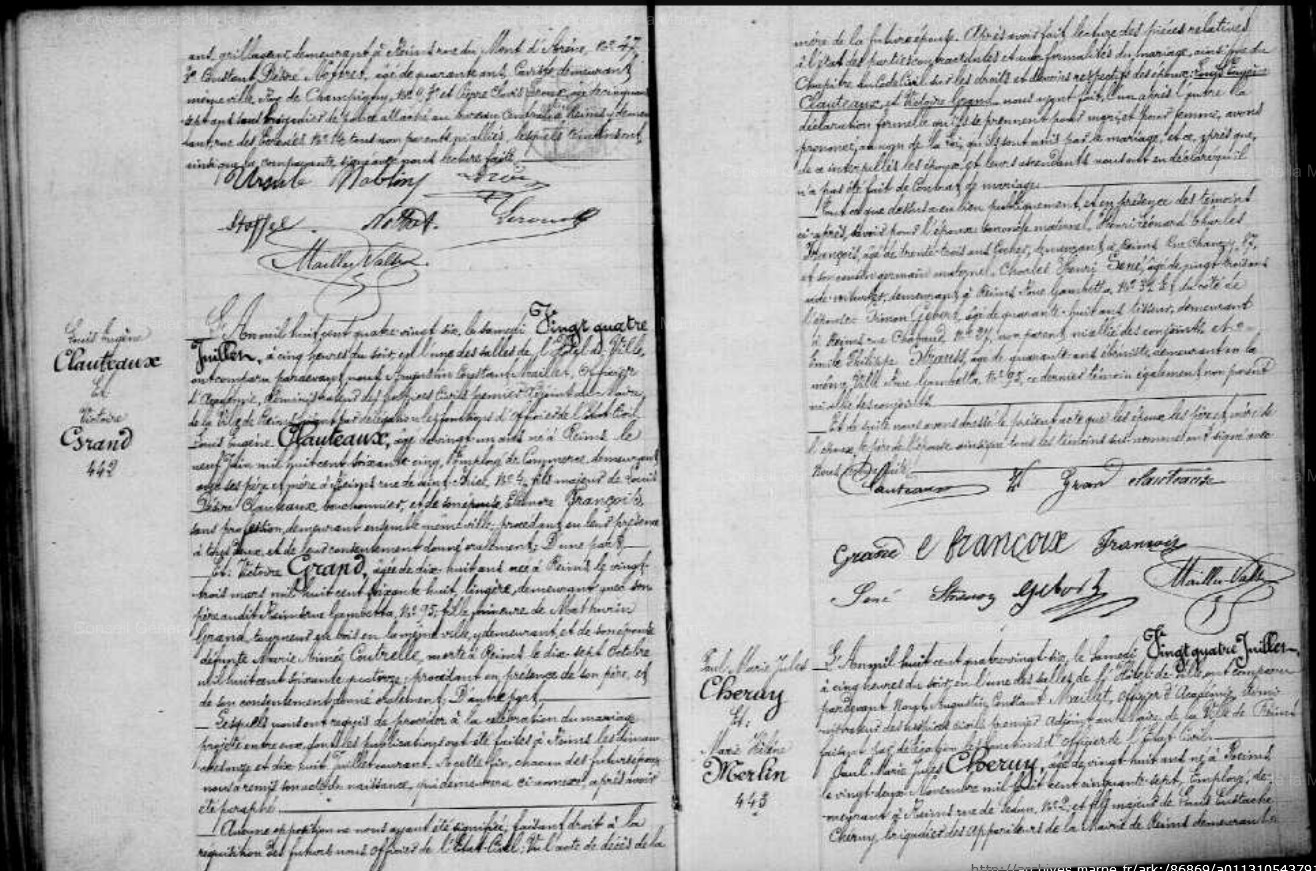 ans, grillageur, demeurant à Reims rue du Mont d'Arène, No. 47,
3° Constant Désiré Nottret, âgé de quarante ans, Caviste, demeurant
même ville, rue de Champigny, No. 9, 4° et Pierre Clovis Leroux, âgé de cinquante
sept ans, sous brigadier de police attaché au bureau Central de Reims y demeu-
rant, rue des No. 14, tous non parents ni alliés, lesquels
ainsi que la comparante, signé avec nous lecture faite.
Stoffel. Nottret. Leroux
Mailler Valle
L'An mil huit cent quatre vingt six, le samedi Vingt quatre
Juillet, à cinq heures du soir, en l'une des salles de l'Hôtel-de-Ville,
ont comparu pardevant nous Augustin Constant Maillet, Officier
d'Académie, Administrateur des hospices Civils premier Adjoint au Maire
de la Ville de Reims faisant par délégation les fonctions d'officier de l'Etat Civil
Louis Eugène Clauteaux, âgé de vingt un ans né à Reims le
neuf Juin mil huit cent soixante cinq, Employé de Commerce, demeurant
avec ses père et mère à Reims rue de No. 4, fils majeur de Louis
Désiré Clauteaux, bouchonnier, et de son épouse Eléonore François,
sans profession, demeurant ensemble même ville; procédant en leur présence
à tous deux, et de leur consentement donné oralement; D'une part,
Et: Victoire Grand, âgée de dix huit ans née à Reims le vingt-
trois mars mil huit cent soixante huit, lingère, demeurant avec son
père audit Reims rue Gambetta, No. 95, fille mineure de Mathurin
Grand, tourneur en bois en la même ville, y demeurant, et de son épouse
défunte Marie Aimée Coutrelle, morte à Reims le dix sept Octobre
mil huit cent soixante quatorze, procédant en présence de son père, et
de son consentement donné oralement; D'autre part,
Lesquels nous ont requis de procéder à la célébration du mariage
projeté entre eux, dont les publications ont été faites à Reims les dimanches
onze et dix huit Juillet courant. A cette fin, chacun des futurs époux
nous a remis son acte de naissance, qui demeurera ci annexé, après avoir
été paraphé.
Aucune opposition ne nous ayant été signifiée, faisant droit à la
réquisition des futurs nous officier de l'Etat-Civil: Vu l'acte de décès de la
Louis Eugène
Clauteaux
Et
Victoire
Grand
442
mère de la future épouse. Après avoir fait lecture des pièces relatives
à l'état des parties contractantes et aux formalités du mariage, ainsi que du
Chapitre du Code Civil sur les droits et devoirs respectifs des époux: Louis Eugène
Clauteaux et Victoire Grand, nous ayant fait, l'un après l'autre la
déclaration formelle qu'ils se prennent pour mari et pour femme, avons
prononcé, au nom de la Loi, qu'ils sont unis par le mariage, et ce, après que,
de ce interpellés les époux, et leurs ascendants nous ont en déclaré qu'il
n'a pas été fait de Contrat de mariage.
Tout ce que dessus a eu lieu publiquement, et en présence des témoins
ci-après, savoir pour l'époux: son oncle maternel, Henri Léonard Charles
François, âgé de trente trois ans, Cocher, demeurant à Reims Rue Chanzy, 87,
et son cousin germain maternel, Charles Henri Sené, âgé de vingt trois ans
demeurant à Reims Rue Gambetta, No. 32. Et du côté de
l'épouse: Simon Gebert, âgé de quarante huit ans tisseur, demeurant
à Reims rue No. 37, non parent ni allié des conjoints et
Emile Philippe Strauss, âgé de quarante ans ébéniste, demeurant en la
même Ville Rue Gambetta, No. 95, ce dernier témoin également non parent
ni allié des conjoints.
Et de suite nous avons dressé le présent acte que les époux les père et mère de
l'époux, le père de l'épouse ainsi que tous les témoins sus-nommés ont signé avec
Nous, lecture faite.
Clauteaux V Grand Clauteaux
Grand E François François
Sené Strauss Gebert Mailler Valle
Paul Marie Jules
Cheruy
Et:
Marie Hélène
Merlin
443
L'An mil huit cent quatre vingt six, le Samedi Vingt quatre Juillet,
à cinq heures du soir, en l'une des salles de l'Hôtel de Ville, ont comparu
pardevant Nous, Augustin Constant Maillet, Officier d'Académie, Admi-
nistrateur des hospices civils, premier Adjoint au Maire de la Ville de Reims
faisant par délégation les fonctions d'officier de l'Etat Civil.
Paul Marie Jules Cheruy, âgé de vingt huit ans né à Reims
le vingt deux Novembre mil huit cent cinquante sept, Employé, de-
meurant à Reims rue de Sedan, No. 2, et fils majeur de Louis Eustache
Cheruy, brigadier des appariteurs de la Mairie de Reims demeurant